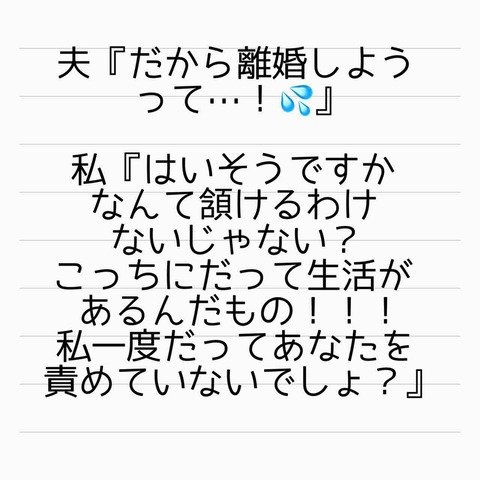 夫『だから離婚しよう
って…！💦』
私『はいそうですか
なんて頷けるわけ
ないじゃない？
こっちにだって生活が
あるんだもの！！！
私一度だってあなたを
責めていないでしょ？』